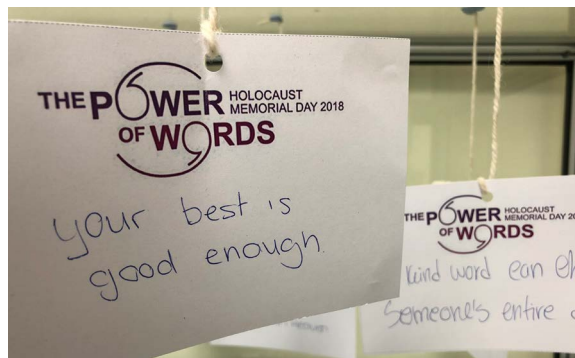 THE POWER
OF WORDS
HOLOCAUST
MEMORIAL DAY 2018
your best is
good enough.
THE POWER
OF WORDS
HOLOCAUST
MEMORIAL DAY 20
kind word can
Someone's entire